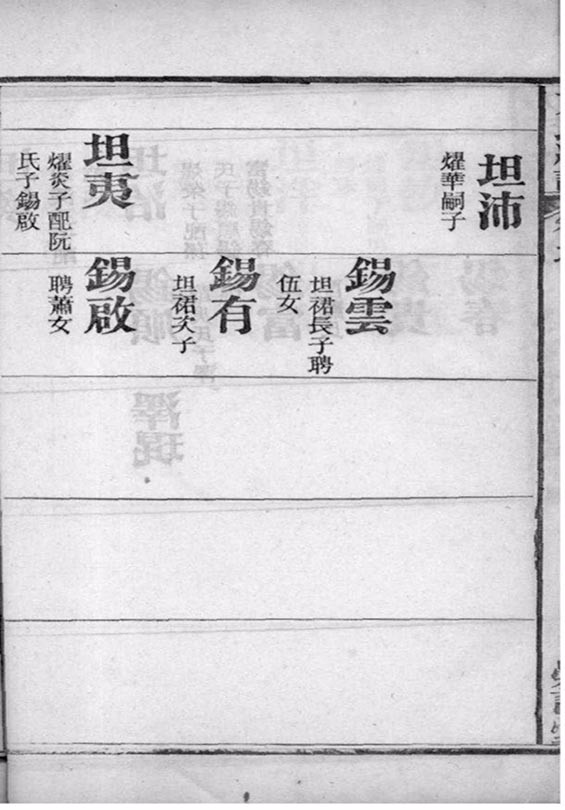 坦沛
燿華嗣子
錫雲
坦裙長子聘
伍女
錫有
坦裙次子
坦夷
燿炎子配阮
氏子錫啟
錫啟
聘蕭女